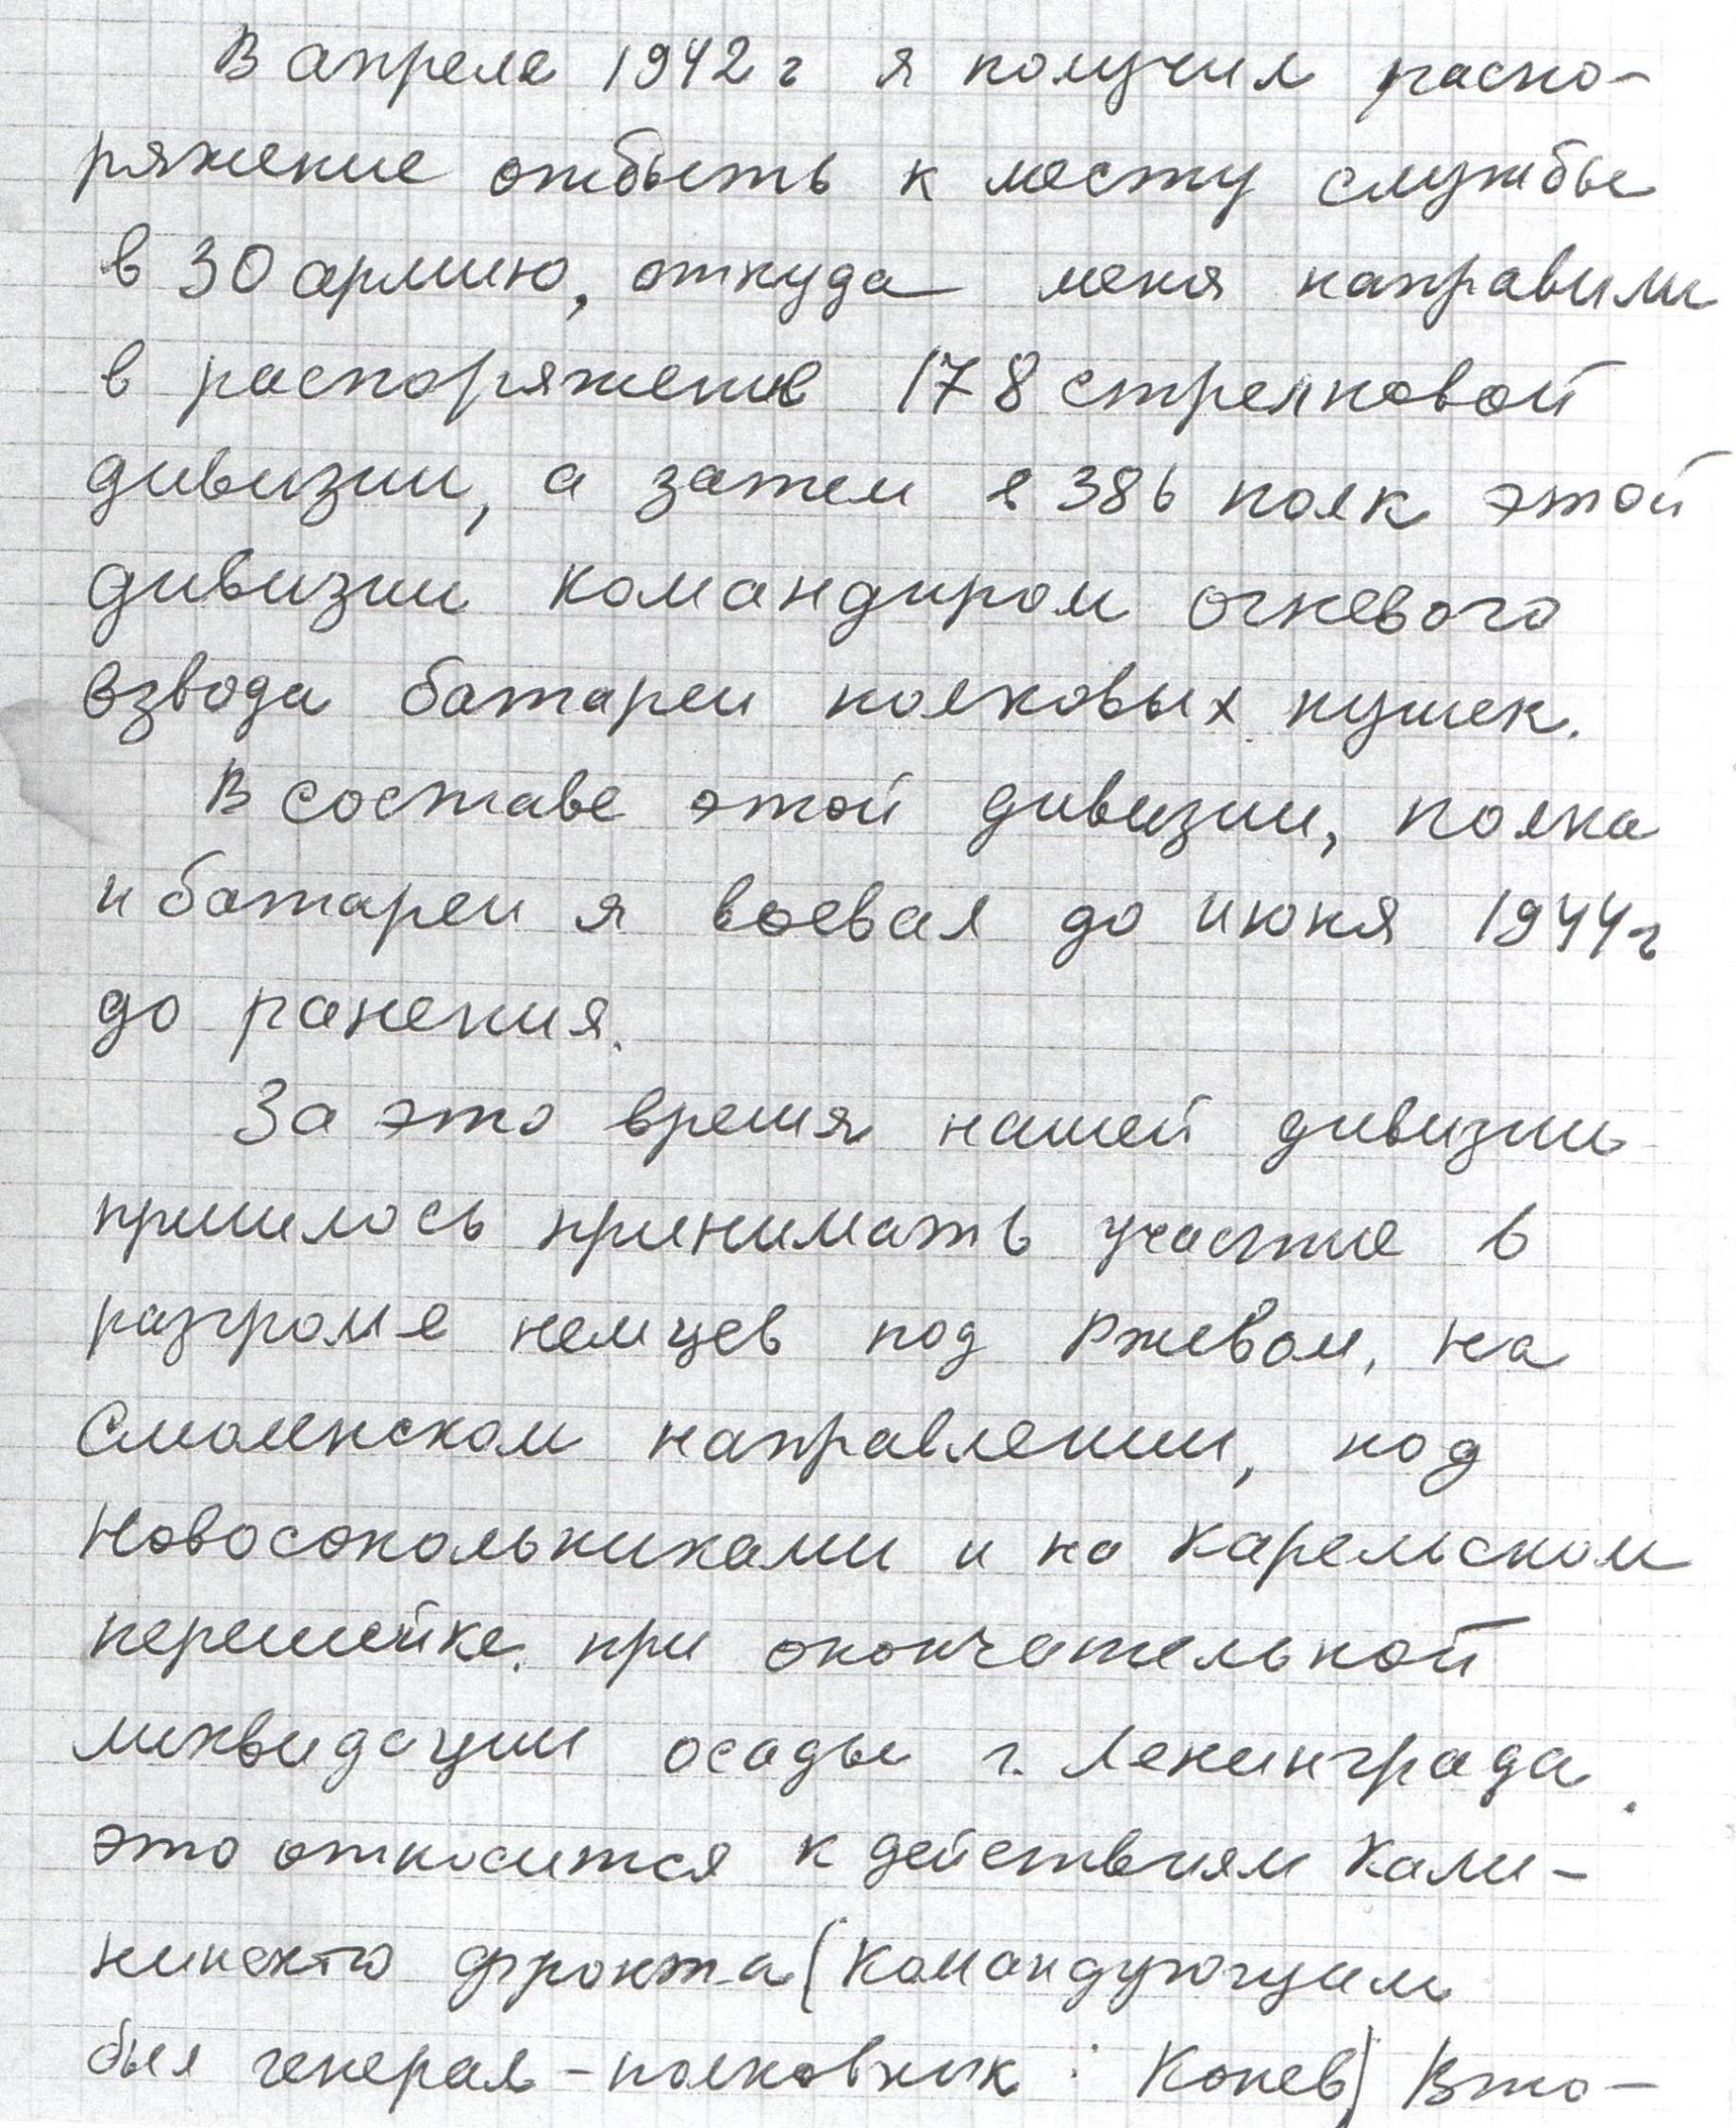 В апреле 1942 г я получил распо-
ряжение отбыть к месту службы
в 30 армию, откуда меня направили
в распоряжение 178 стрелковой
дивизии, а затем в 386 полк этой
дивизии командиром огневого
взвода батареи полковых пушек.
В составе этой дивизии, полка
и батареи я воевал до июня 1944 г
до ранения.
За это время нашей дивизии
пришлось принимать участие в
разгроме немцев под Ржевом, на
Смоленском направлении, под
Новосокольниками и на Карельском
перешейке, при окончательной
ликвидации осады г. Ленинграда.
это относится к действиям Кали-
нинского фронта (командующим
был генерал-полковник Конев) Вто-